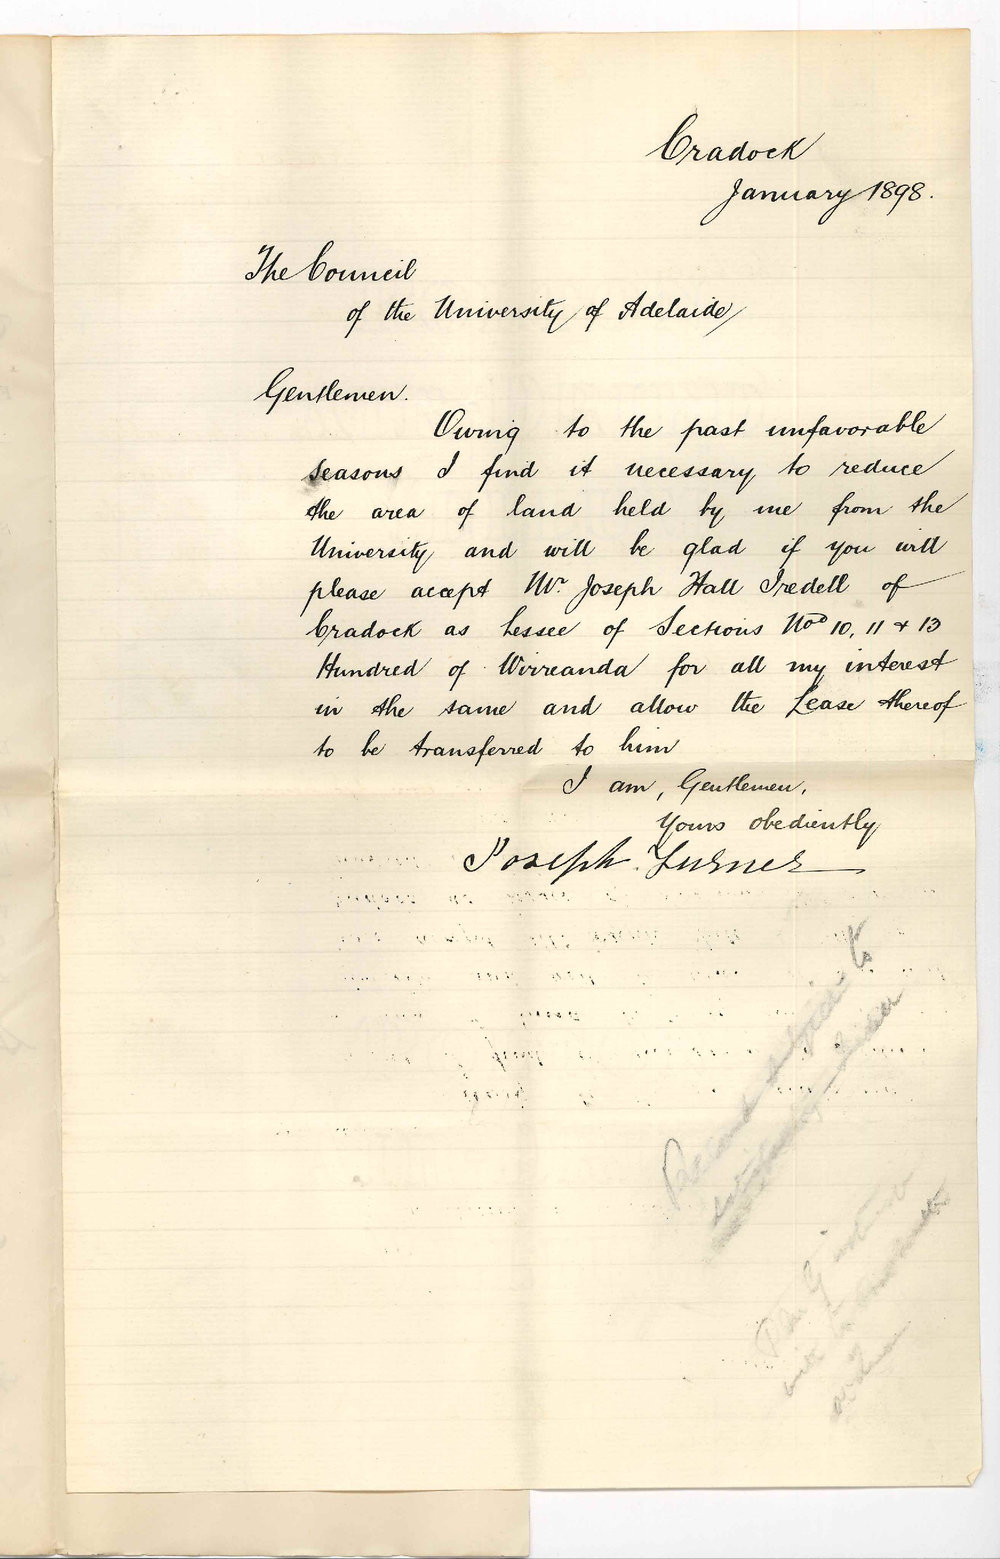 Cradock
January 1898.
The Council
of the University of Adelaide
Gentlemen.
Owing to the past unfavorable
seasons I find it necessary to reduce
the area of land held by me from the
University and will be glad if you will
please accept Mr. Joseph Hall Iredell of
Cradock as Lessee of Sections Nos 10, 11 & 13
Hundred of Wirreanda for all my interest
in the same and allow the Lease thereof
to be transferred to him
I am, Gentlemen,
Yours obediently
Joseph Turner